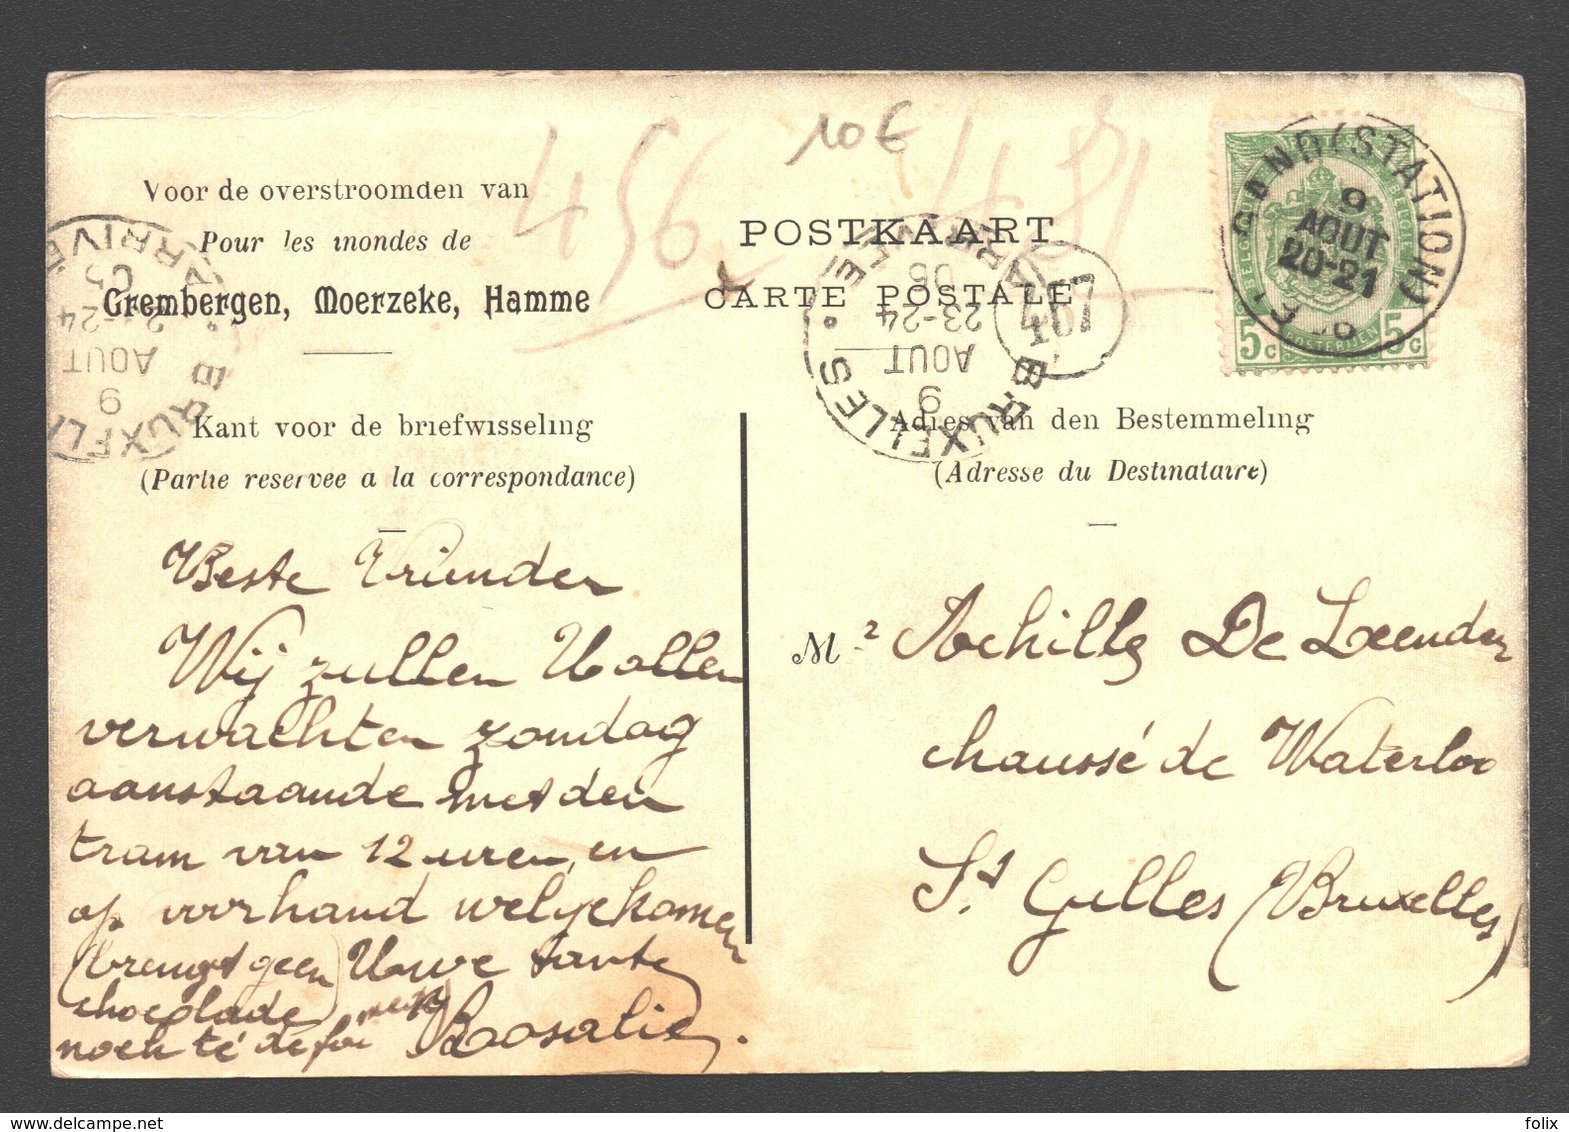 10€
456
Voor de overstroomden van
Pour les inondes de
Grembergen, Moerzeke, Hamme
POSTKAART
CARTE POSTALE
GAND (STATION)
9
AOUT
20-21
5c 5c
BRUXELLES
ARRIVE
9
AOUT
23-24
06
407
Kant voor de briefwisseling
(Partie reservee a la correspondance)
Adres van den Bestemmeling
(Adresse du Destinataire)
Beste Vrienden
Wij zullen U allen
verwachten zondag
aanstaande met den
tram van 12 uren, en
op voorhand welgekomen
(brengt geen) Uwe tante
chocolade
noch té de foi Rosalie.
Mr Achille De Leender
chaussé de Waterloo
St Gilles (Bruxelles)
folix